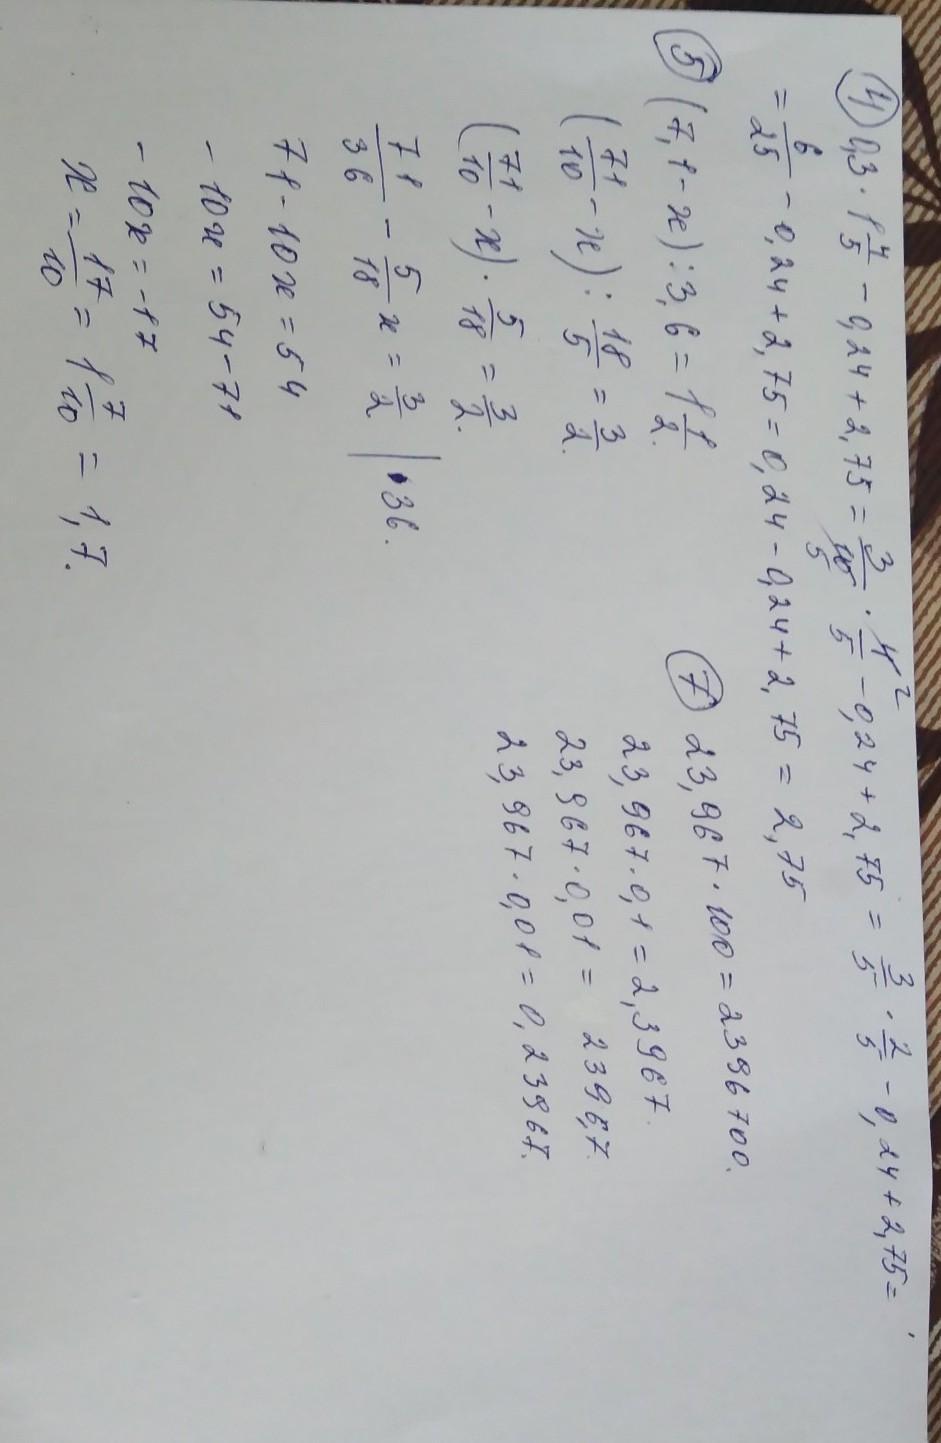 ④ 0,3 · 1 4/5 - 0,24 + 2,75 = 3/10 5 · 4 2/5 - 0,24 + 2,75 = 3/5 · 2/5 - 0,24 + 2,75 =
= 6/25 - 0,24 + 2,75 = 0,24 - 0,24 + 2,75 = 2,75
⑤ (7,1 - x) : 3,6 = 1 1/2.
(71/10 - x) : 18/5 = 3/2.
(71/10 - x) · 5/18 = 3/2.
71/36 - 5/18 x = 3/2 | · 36.
71 - 10x = 54
- 10x = 54 - 71
- 10x = -17
x = 17/10 = 1 7/10 = 1,7.
⑦ 23,967 · 100 = 2396700.
23,967 · 0,1 = 2,3967.
23,967 · 0,01 = 2396,7.
23,967 · 0,01 = 0,23967.